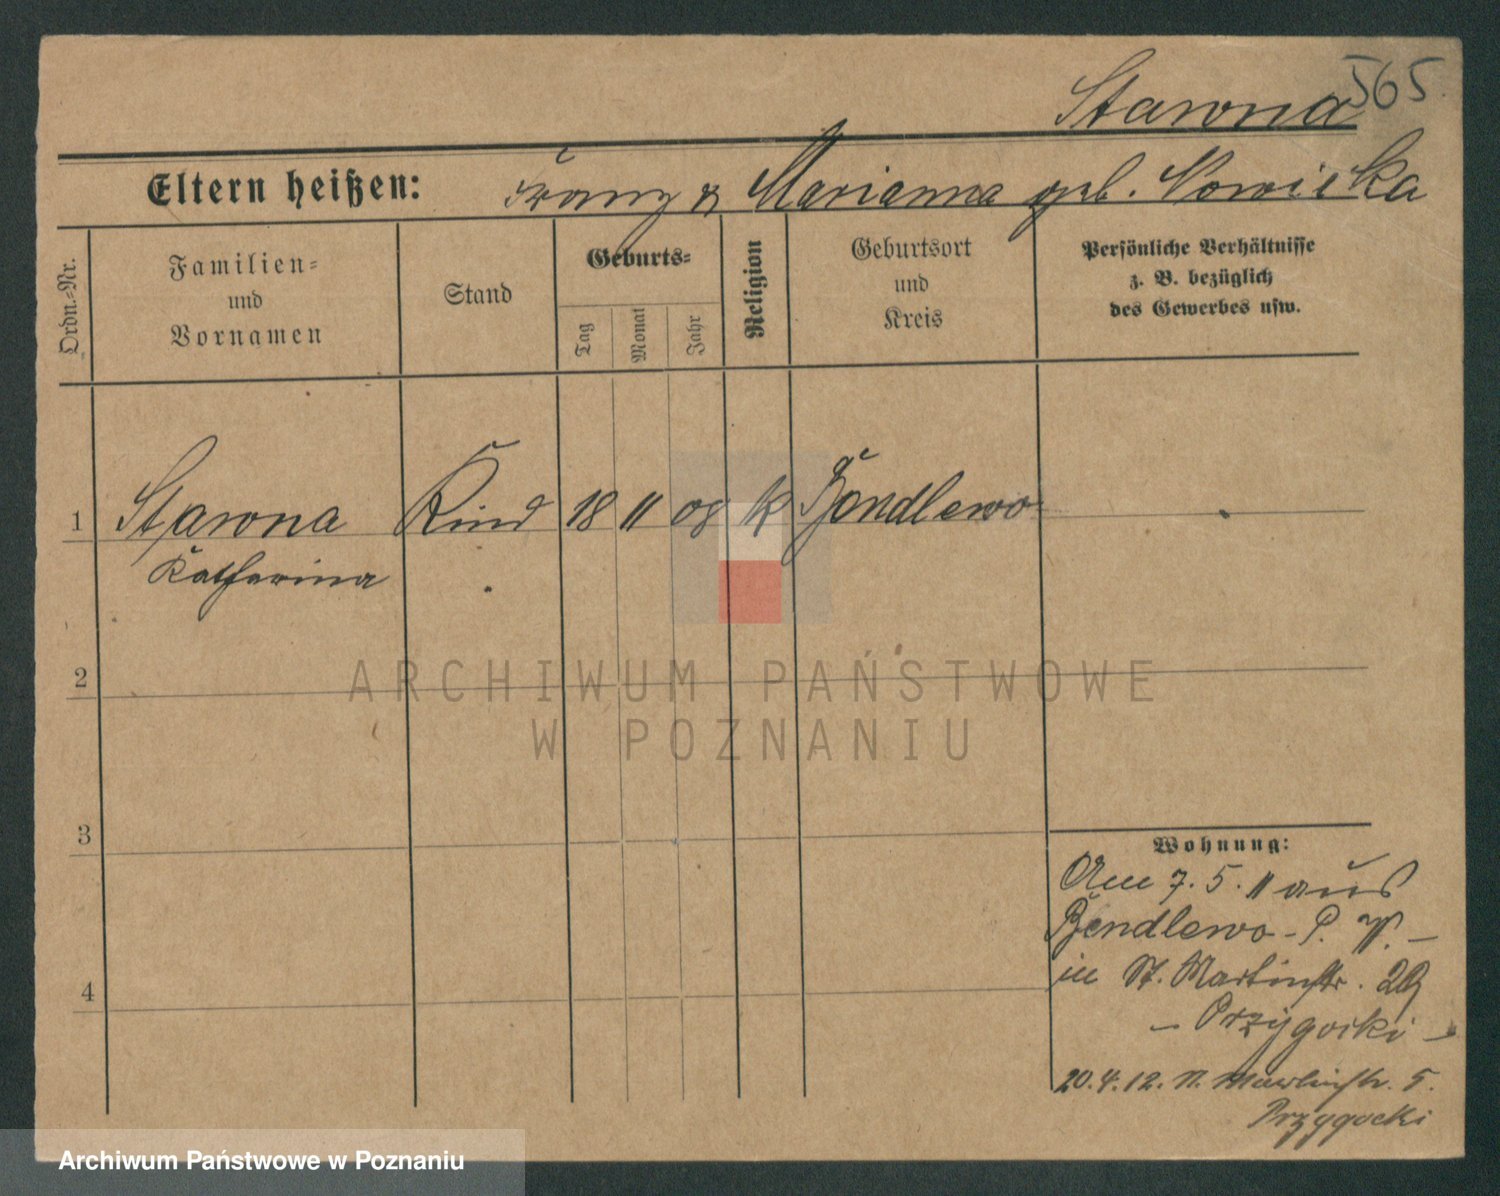 Stawna 565.
Eltern heißen: Franz & Marianna geb. Nowicka
Ordn.-Nr.
Familien-
und
Vornamen
Stand
Geburts-
Tag
Monat
Jahr
Religion
Geburtsort
und
Kreis
Persönliche Verhältnisse
z. B. bezüglich
des Gewerbes usw.
1 Stawna Kind 18 11 08 k Bendlewo
Katharina
2
3
4
Wohnung:
Am 7. 5. 11 aus
Bendlewo - P. W. -
in St. Martinstr. 29
- Przygocki -
20. 4. 12. St. Martinstr. 5.
Przygocki
ARCHIWUM PAŃSTWOWE
W POZNANIU
Archiwum Państwowe w Poznaniu